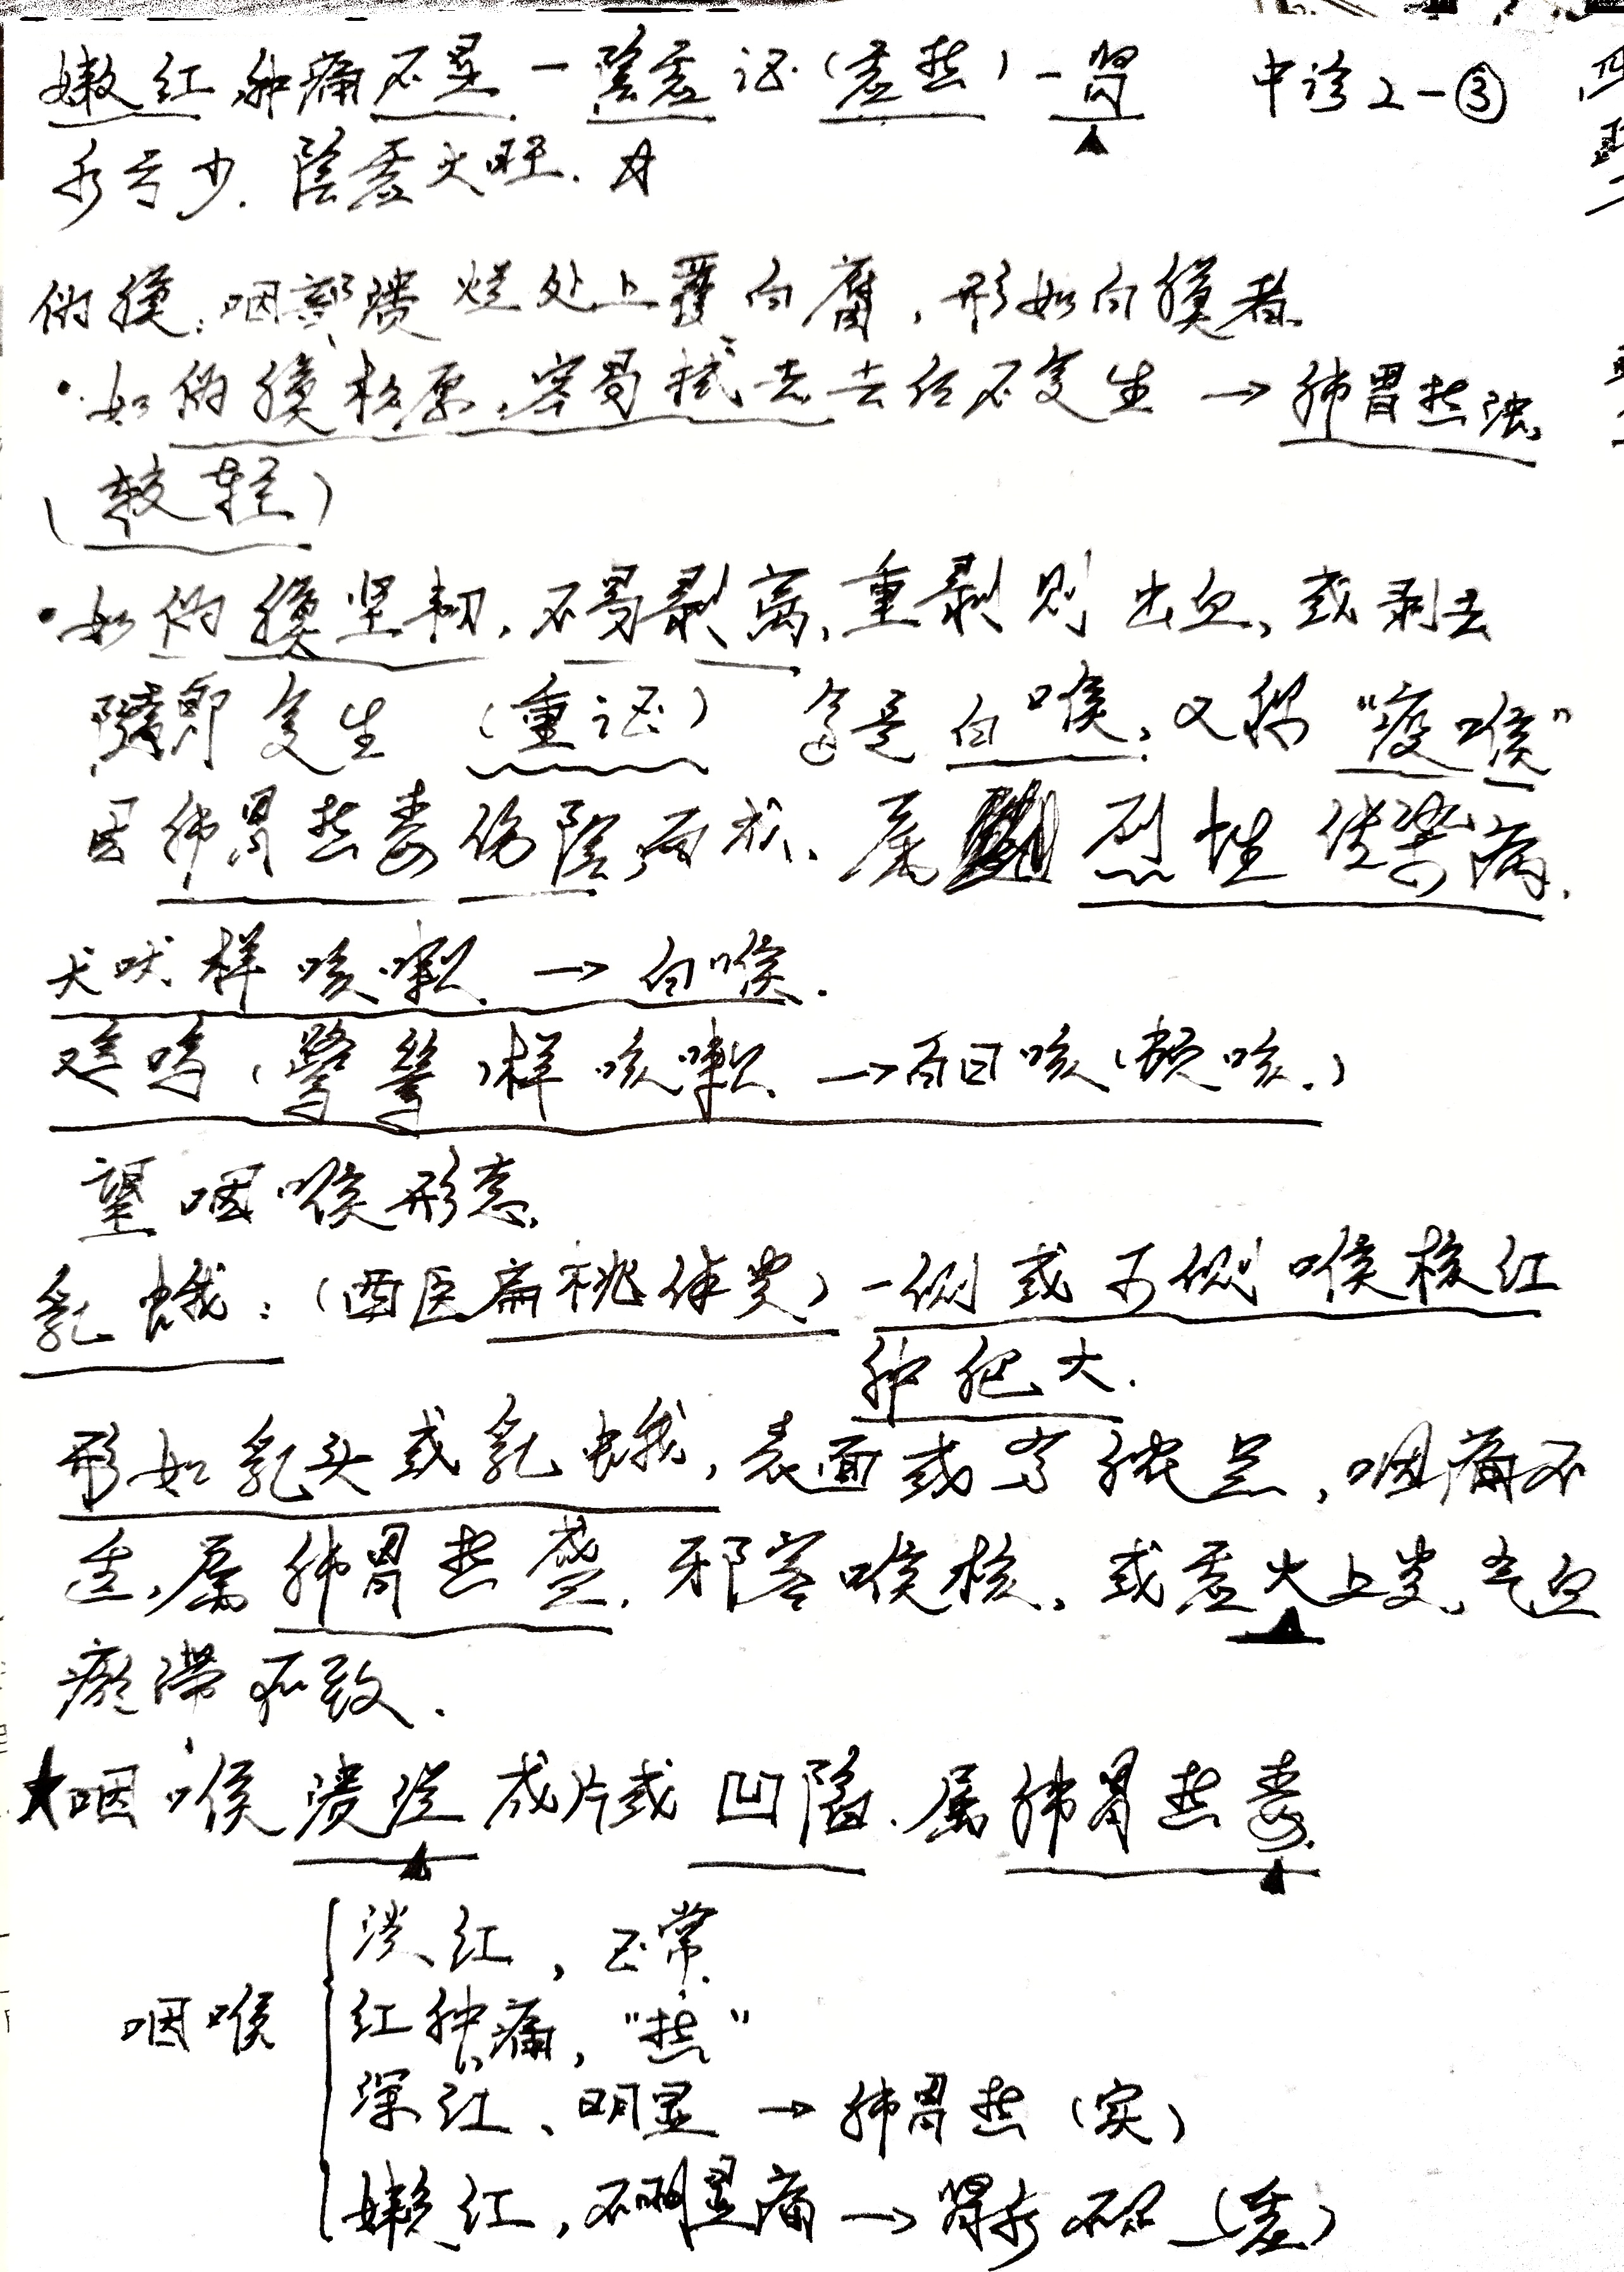 嫩红,肿痛不显-陰虚证(虚热)-肾 中诊2-③
水亏少.陰虚火旺.
伪膜:咽部溃烂处上覆白腐,形如白膜者.
·如伪膜松厚,容易拭去去后不复生→肺胃热浊,
(较轻)
·如伪膜坚韧,不易剥离,重剥则出血,或剥去
随即复生(重证)多是白喉,又称"疫喉"
因肺胃热毒伤陰而成、属烈性传染病.
犬吠样咳嗽→白喉.
鸡鸣(鹭鸶)样咳嗽→百日咳(顿咳.)
望咽喉形态,
乳蛾:(西医扁桃体炎)一侧或两侧喉核红
肿肥大.
形如乳头或乳蛾,表面或有脓点,咽痛不
适,属肺胃热盛.邪客喉核,或虚火上炎,气血
瘀滞而致.
★咽喉溃烂成片或凹陷.属肺胃热毒.
淡红,正常.
红肿痛,"热"
咽喉
深红、明显→肺胃热(实)
嫩红,不明显痛→肾水不足(虚)